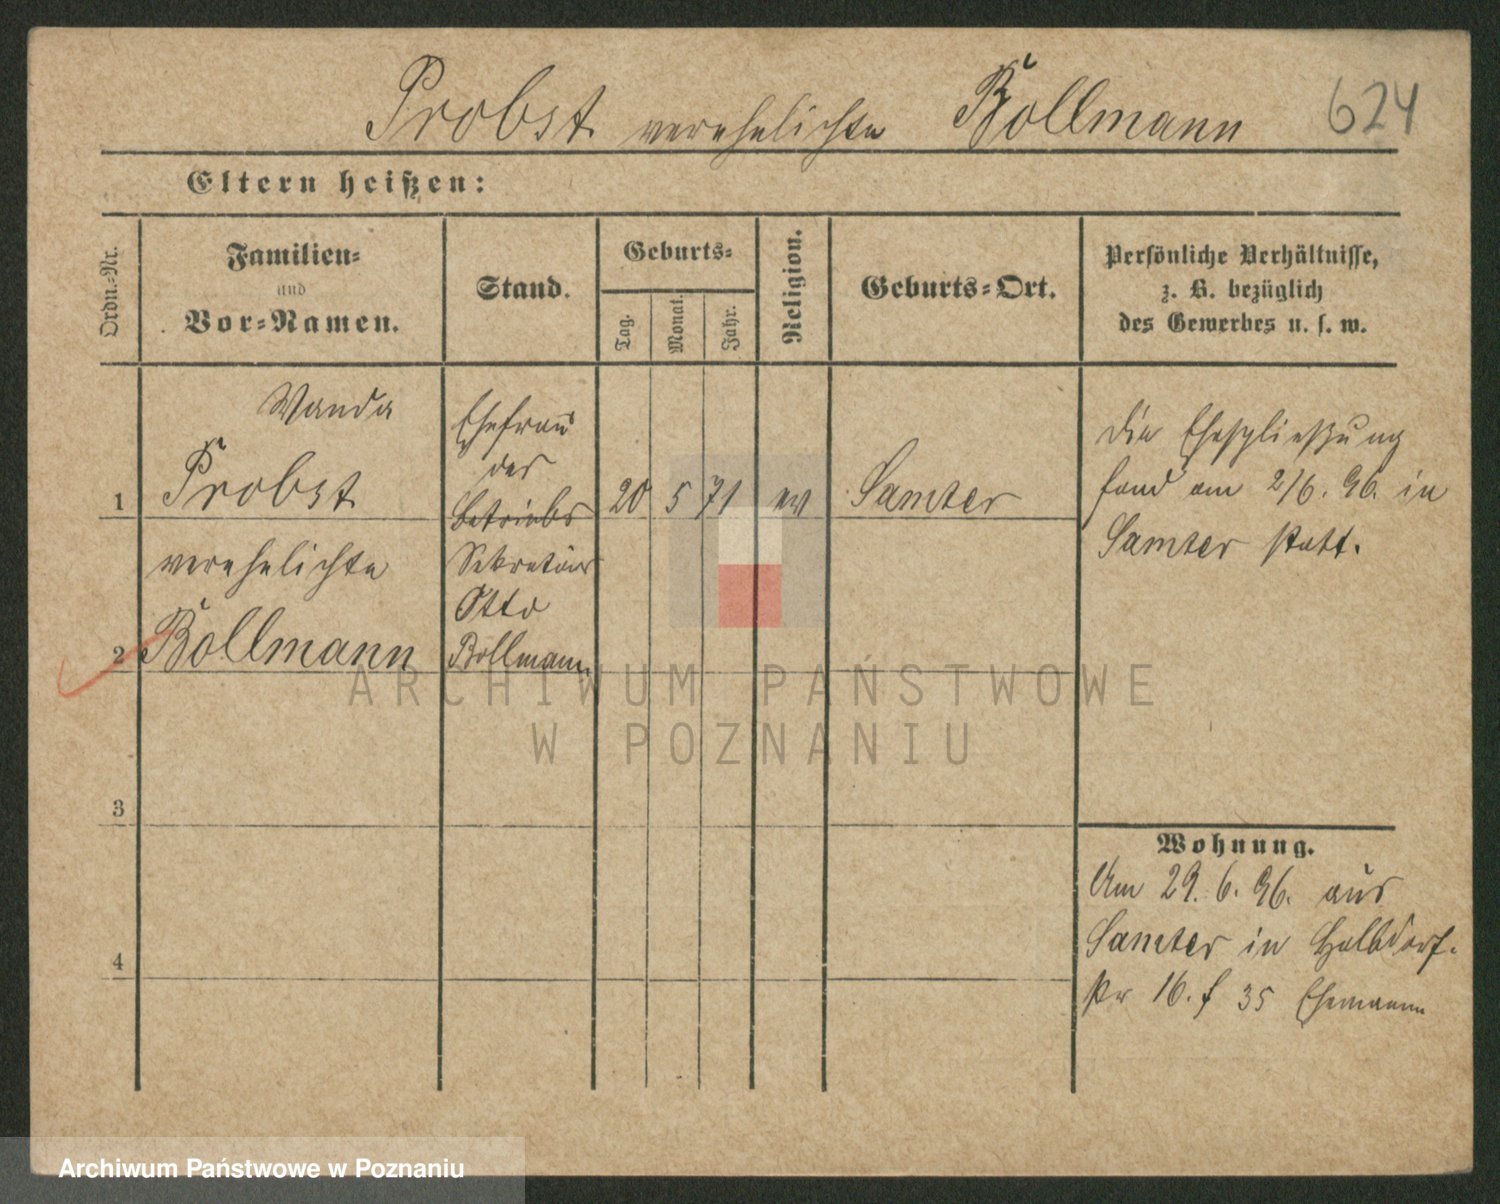 Probst verehelichte Bollmann 624
Eltern heißen:
Ordn.-Nr.
Familien-
und
Vor-Namen.
Stand.
Geburts-
Tag.
Monat.
Jahr.
Religion.
Geburts-Ort.
Persönliche Verhältnisse,
z. B. bezüglich
des Gewerbes u. s. w.
1
Wanda
Probst
verehelichte
2
Bollmann
Ehefrau
des
Betriebs
Sekretärs
Otto
Bollmann.
20 5 71 ev Samter
Die Eheschließung
fand am 2/6. 96. in
Samter statt.
3
4
Wohnung.
Am 29. 6. 96. aus
Samter in Halbdorf-
str 16. f 35 Ehemann
ARCHIWUM PAŃSTWOWE
W POZNANIU
Archiwum Państwowe w Poznaniu